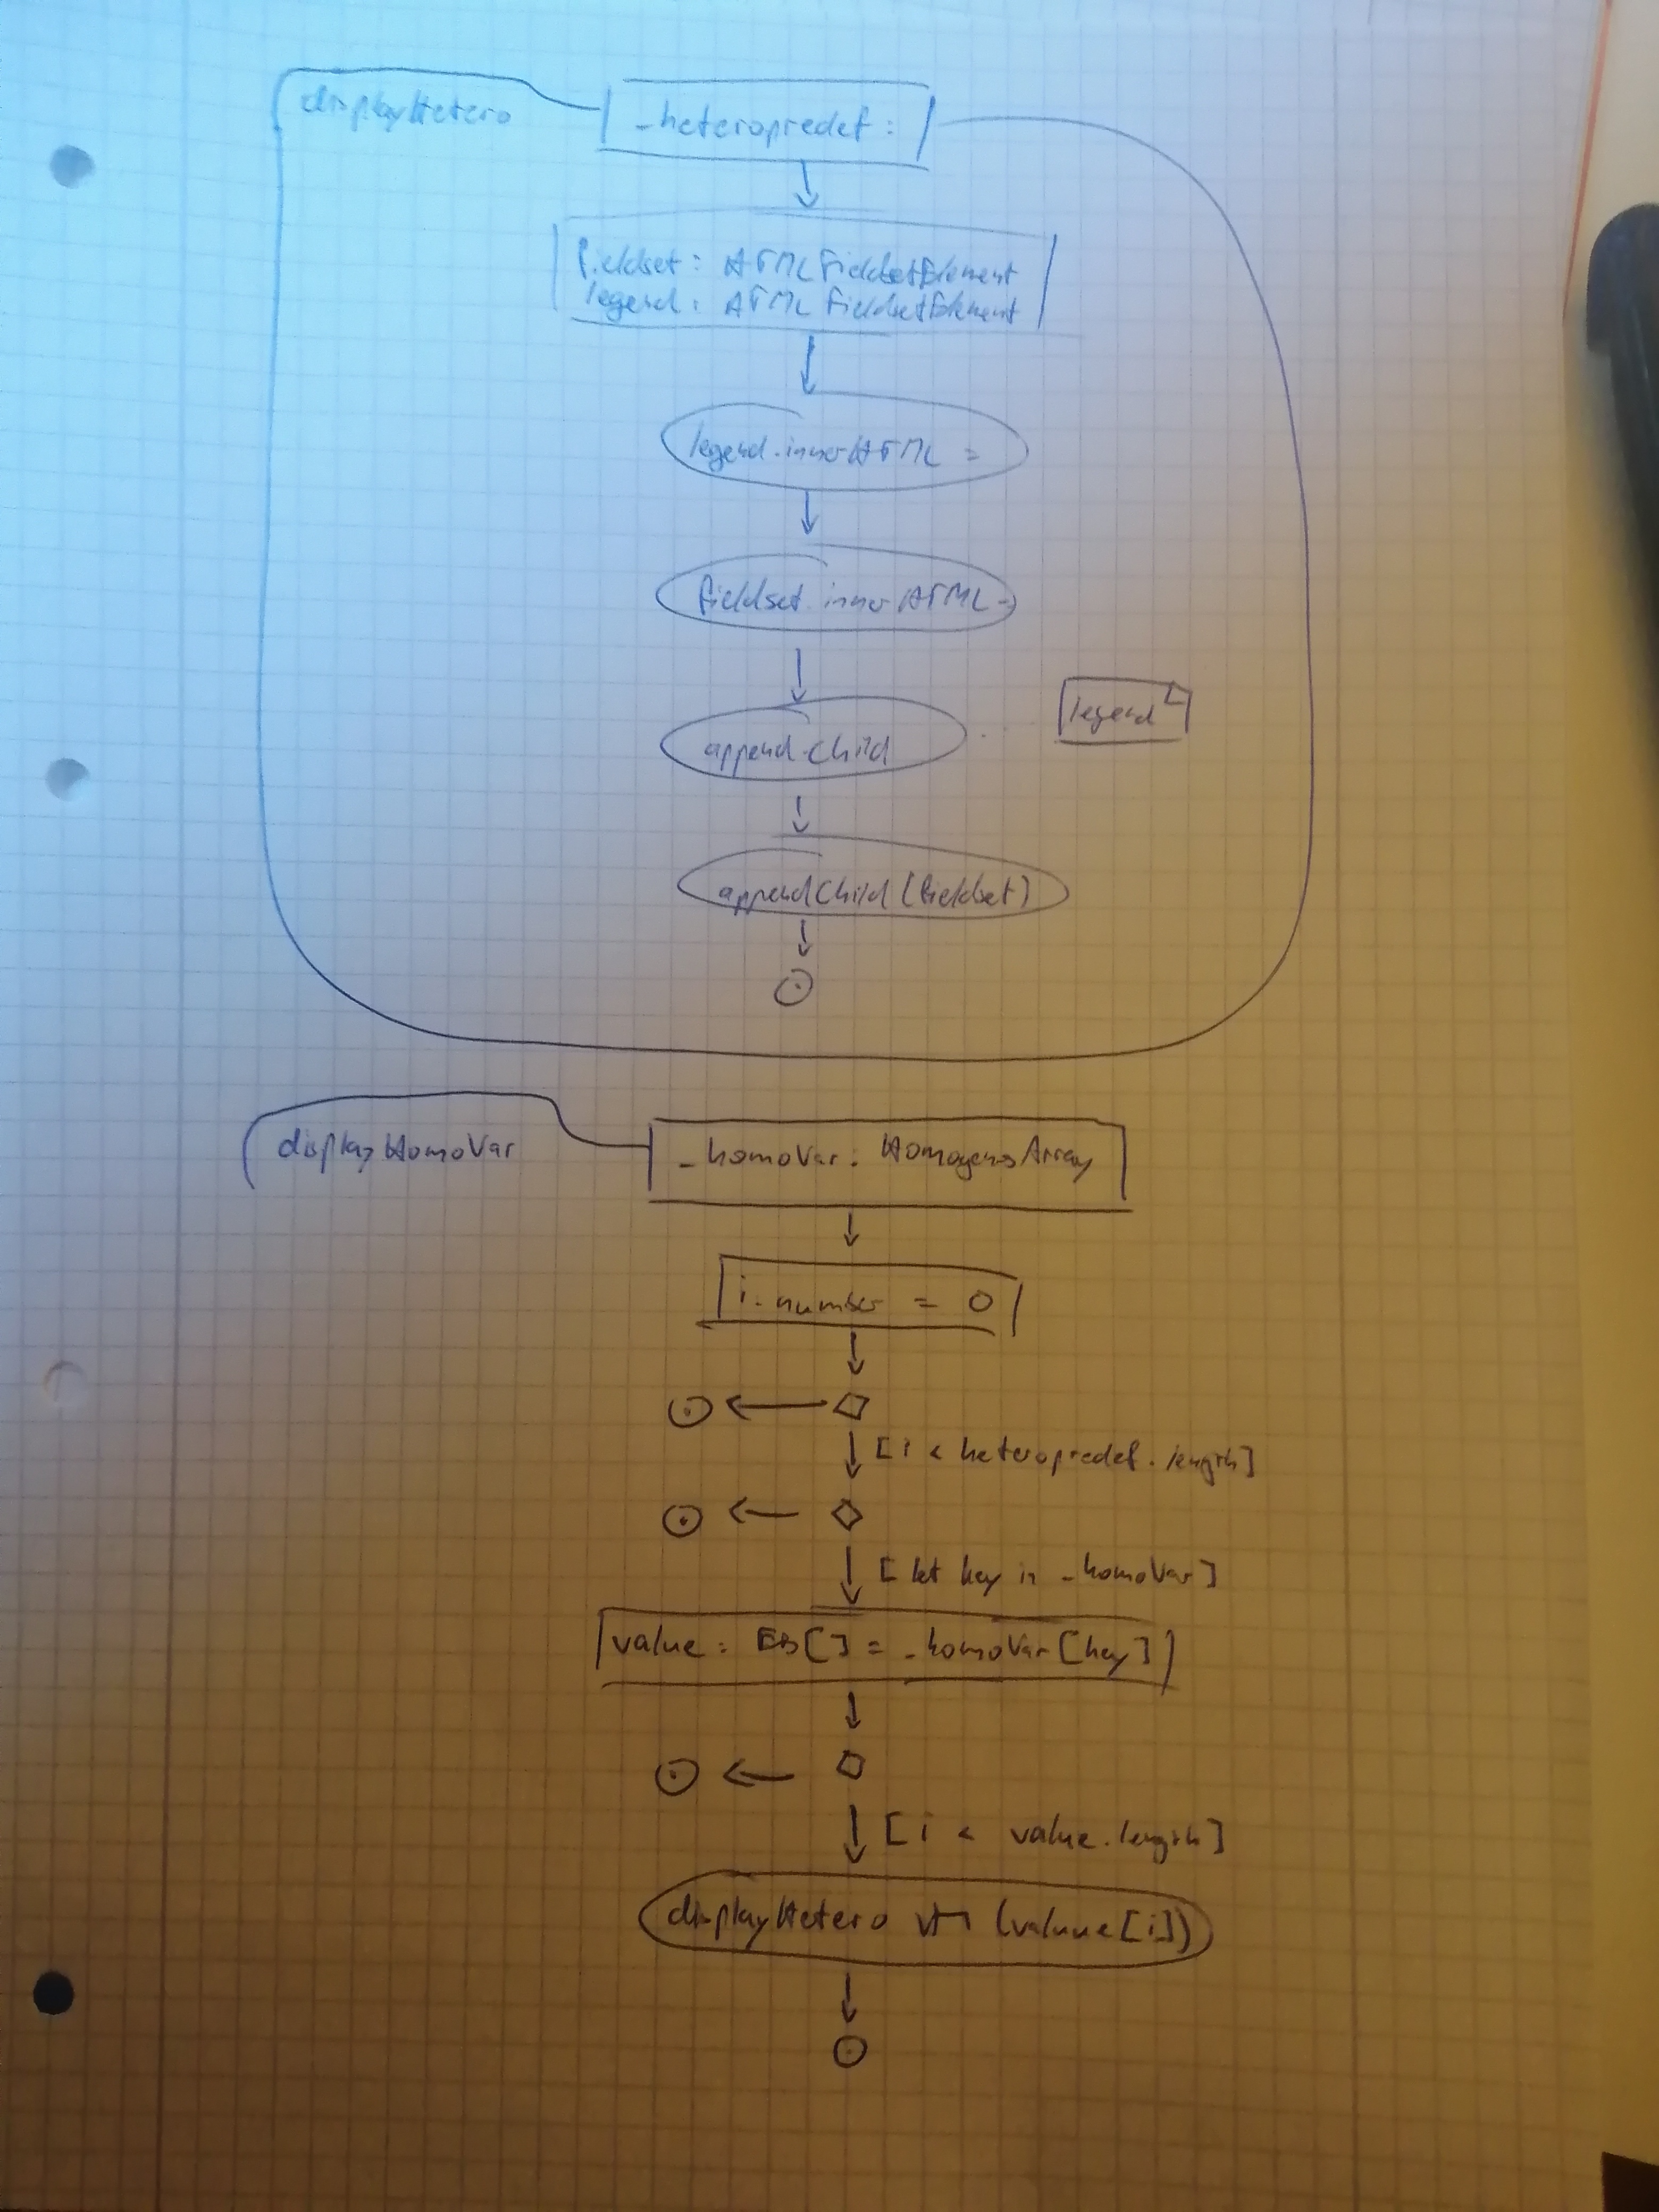 displayHetero
_heteropredef:
fieldset: HTMLFieldsetElement
legend: HTMLFieldsetElement
legend.innerHTML =
fieldset.innerHTML =
legend
append.Child
appendChild (fieldset)
displayHomoVar
_homoVar: HomogenosArray
i. number = 0
[i < heteropredef.length]
[let key in _homoVar]
value: [] = _homoVar[key]
[i < value.length]
displayHetero (valuue[i])